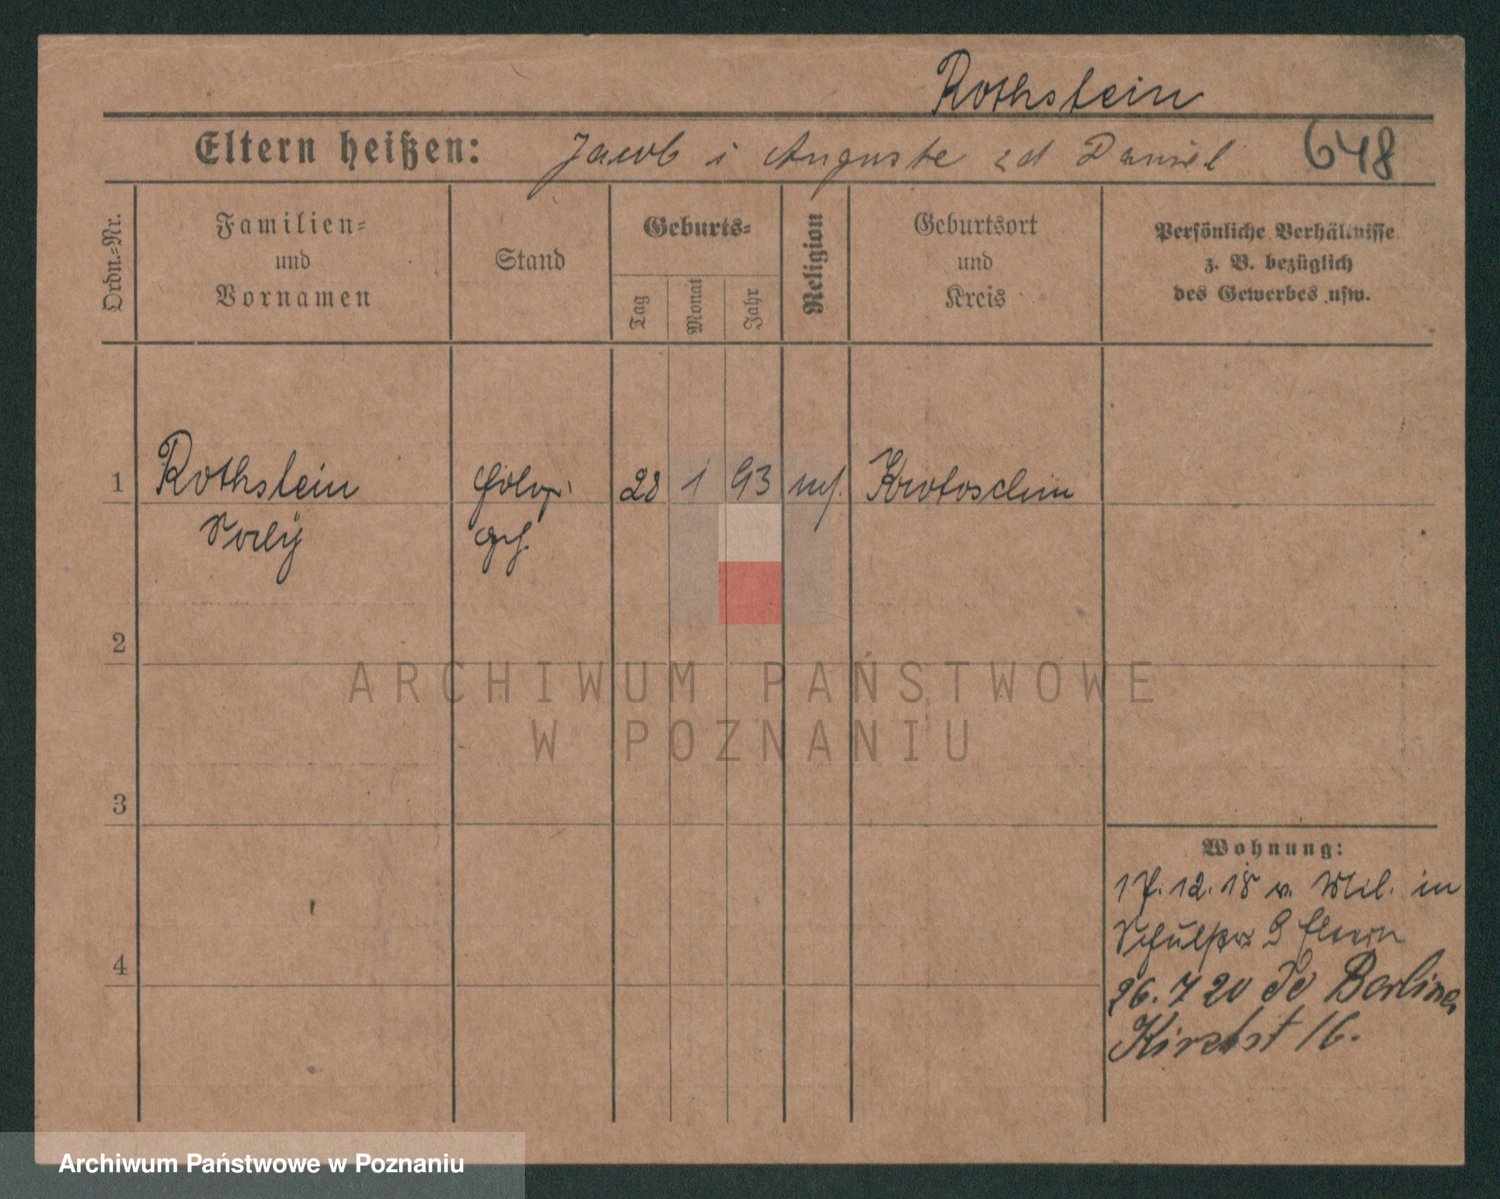 Rothstein
Eltern heißen: Jacob i Auguste zd Daniel 648
Ordn.-Nr.
Familien-
und
Vornamen
Stand
Geburts-
Tag
Monat
Jahr
Religion
Geburtsort
und
Kreis
Persönliche Verhältnisse
z. B. bezüglich
des Gewerbes usw.
1 Rothstein 28 1 93 Krotoschin
2
3
4
Wohnung:
17.12.18 v. Mil. in
Eltern
26.7 20 Berlin
Kirchst 16.
ARCHIWUM PAŃSTWOWE
W POZNANIU
Archiwum Państwowe w Poznaniu